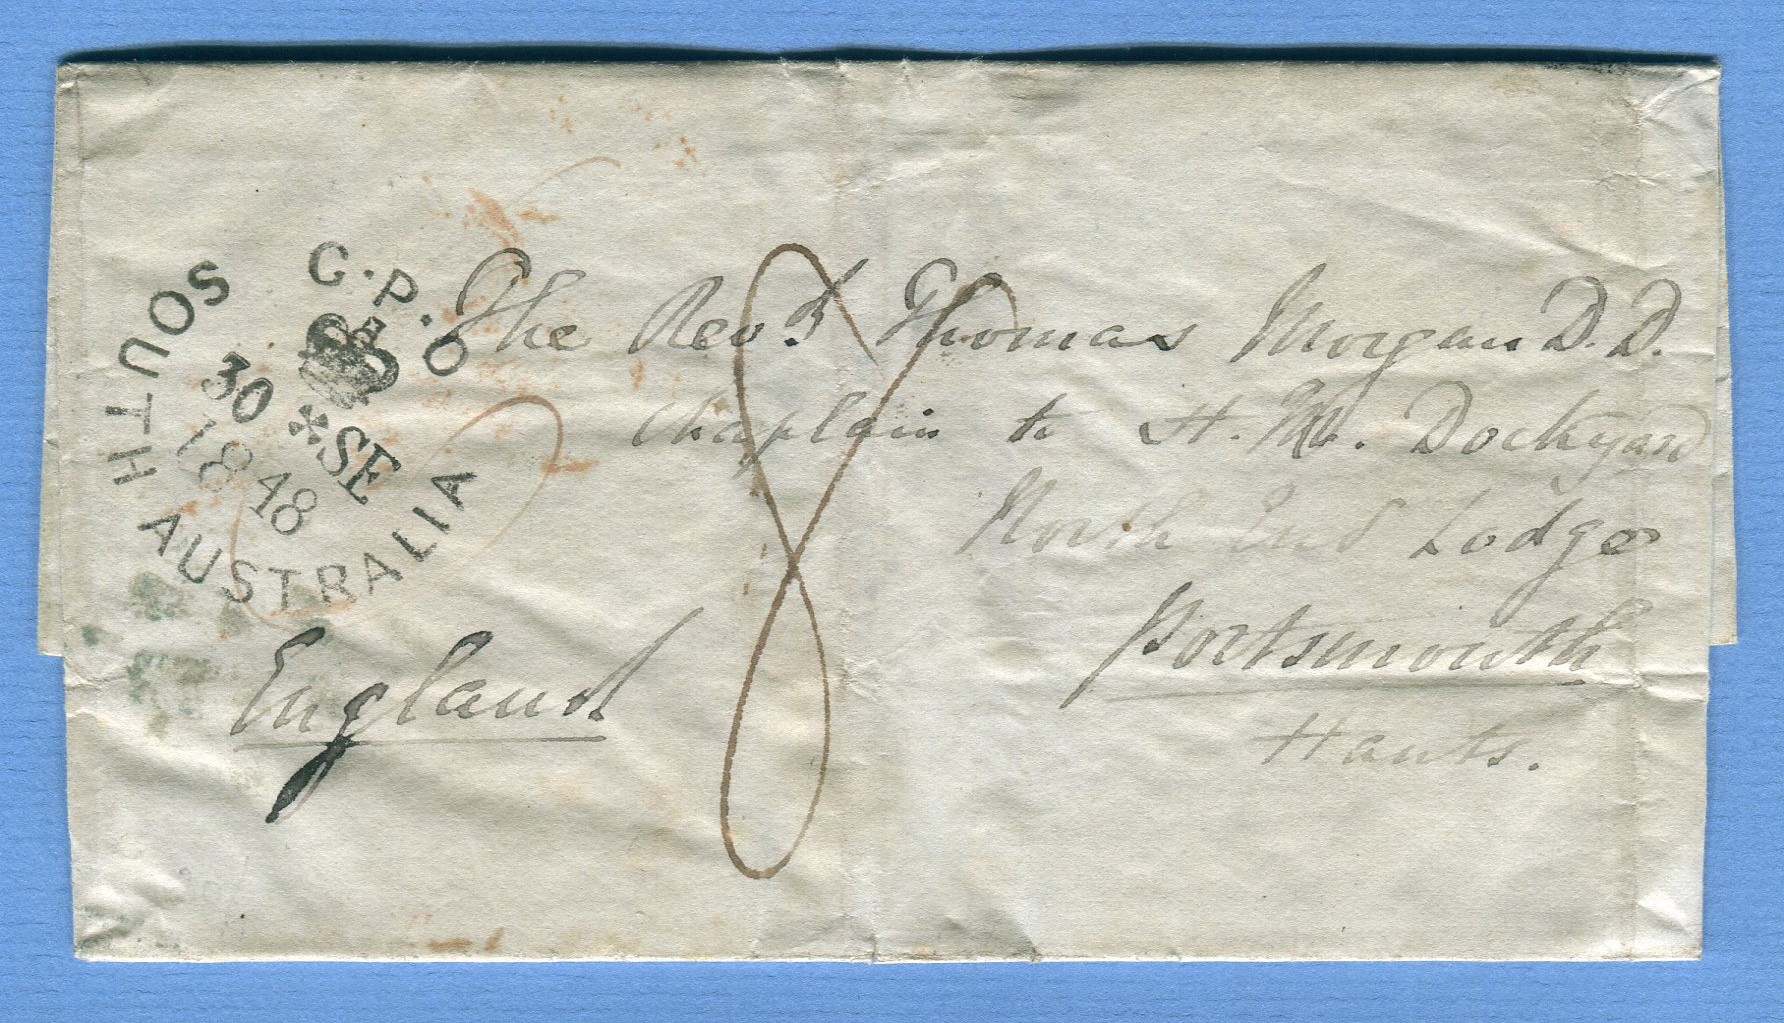 G.P.O
SOUTH AUSTRALIA
30 SE
1848
8
The Revd Thomas Morgan D.D.
Chaplain to H.M. Dockyard
North End Lodge
Portsmouth
Hants.
England